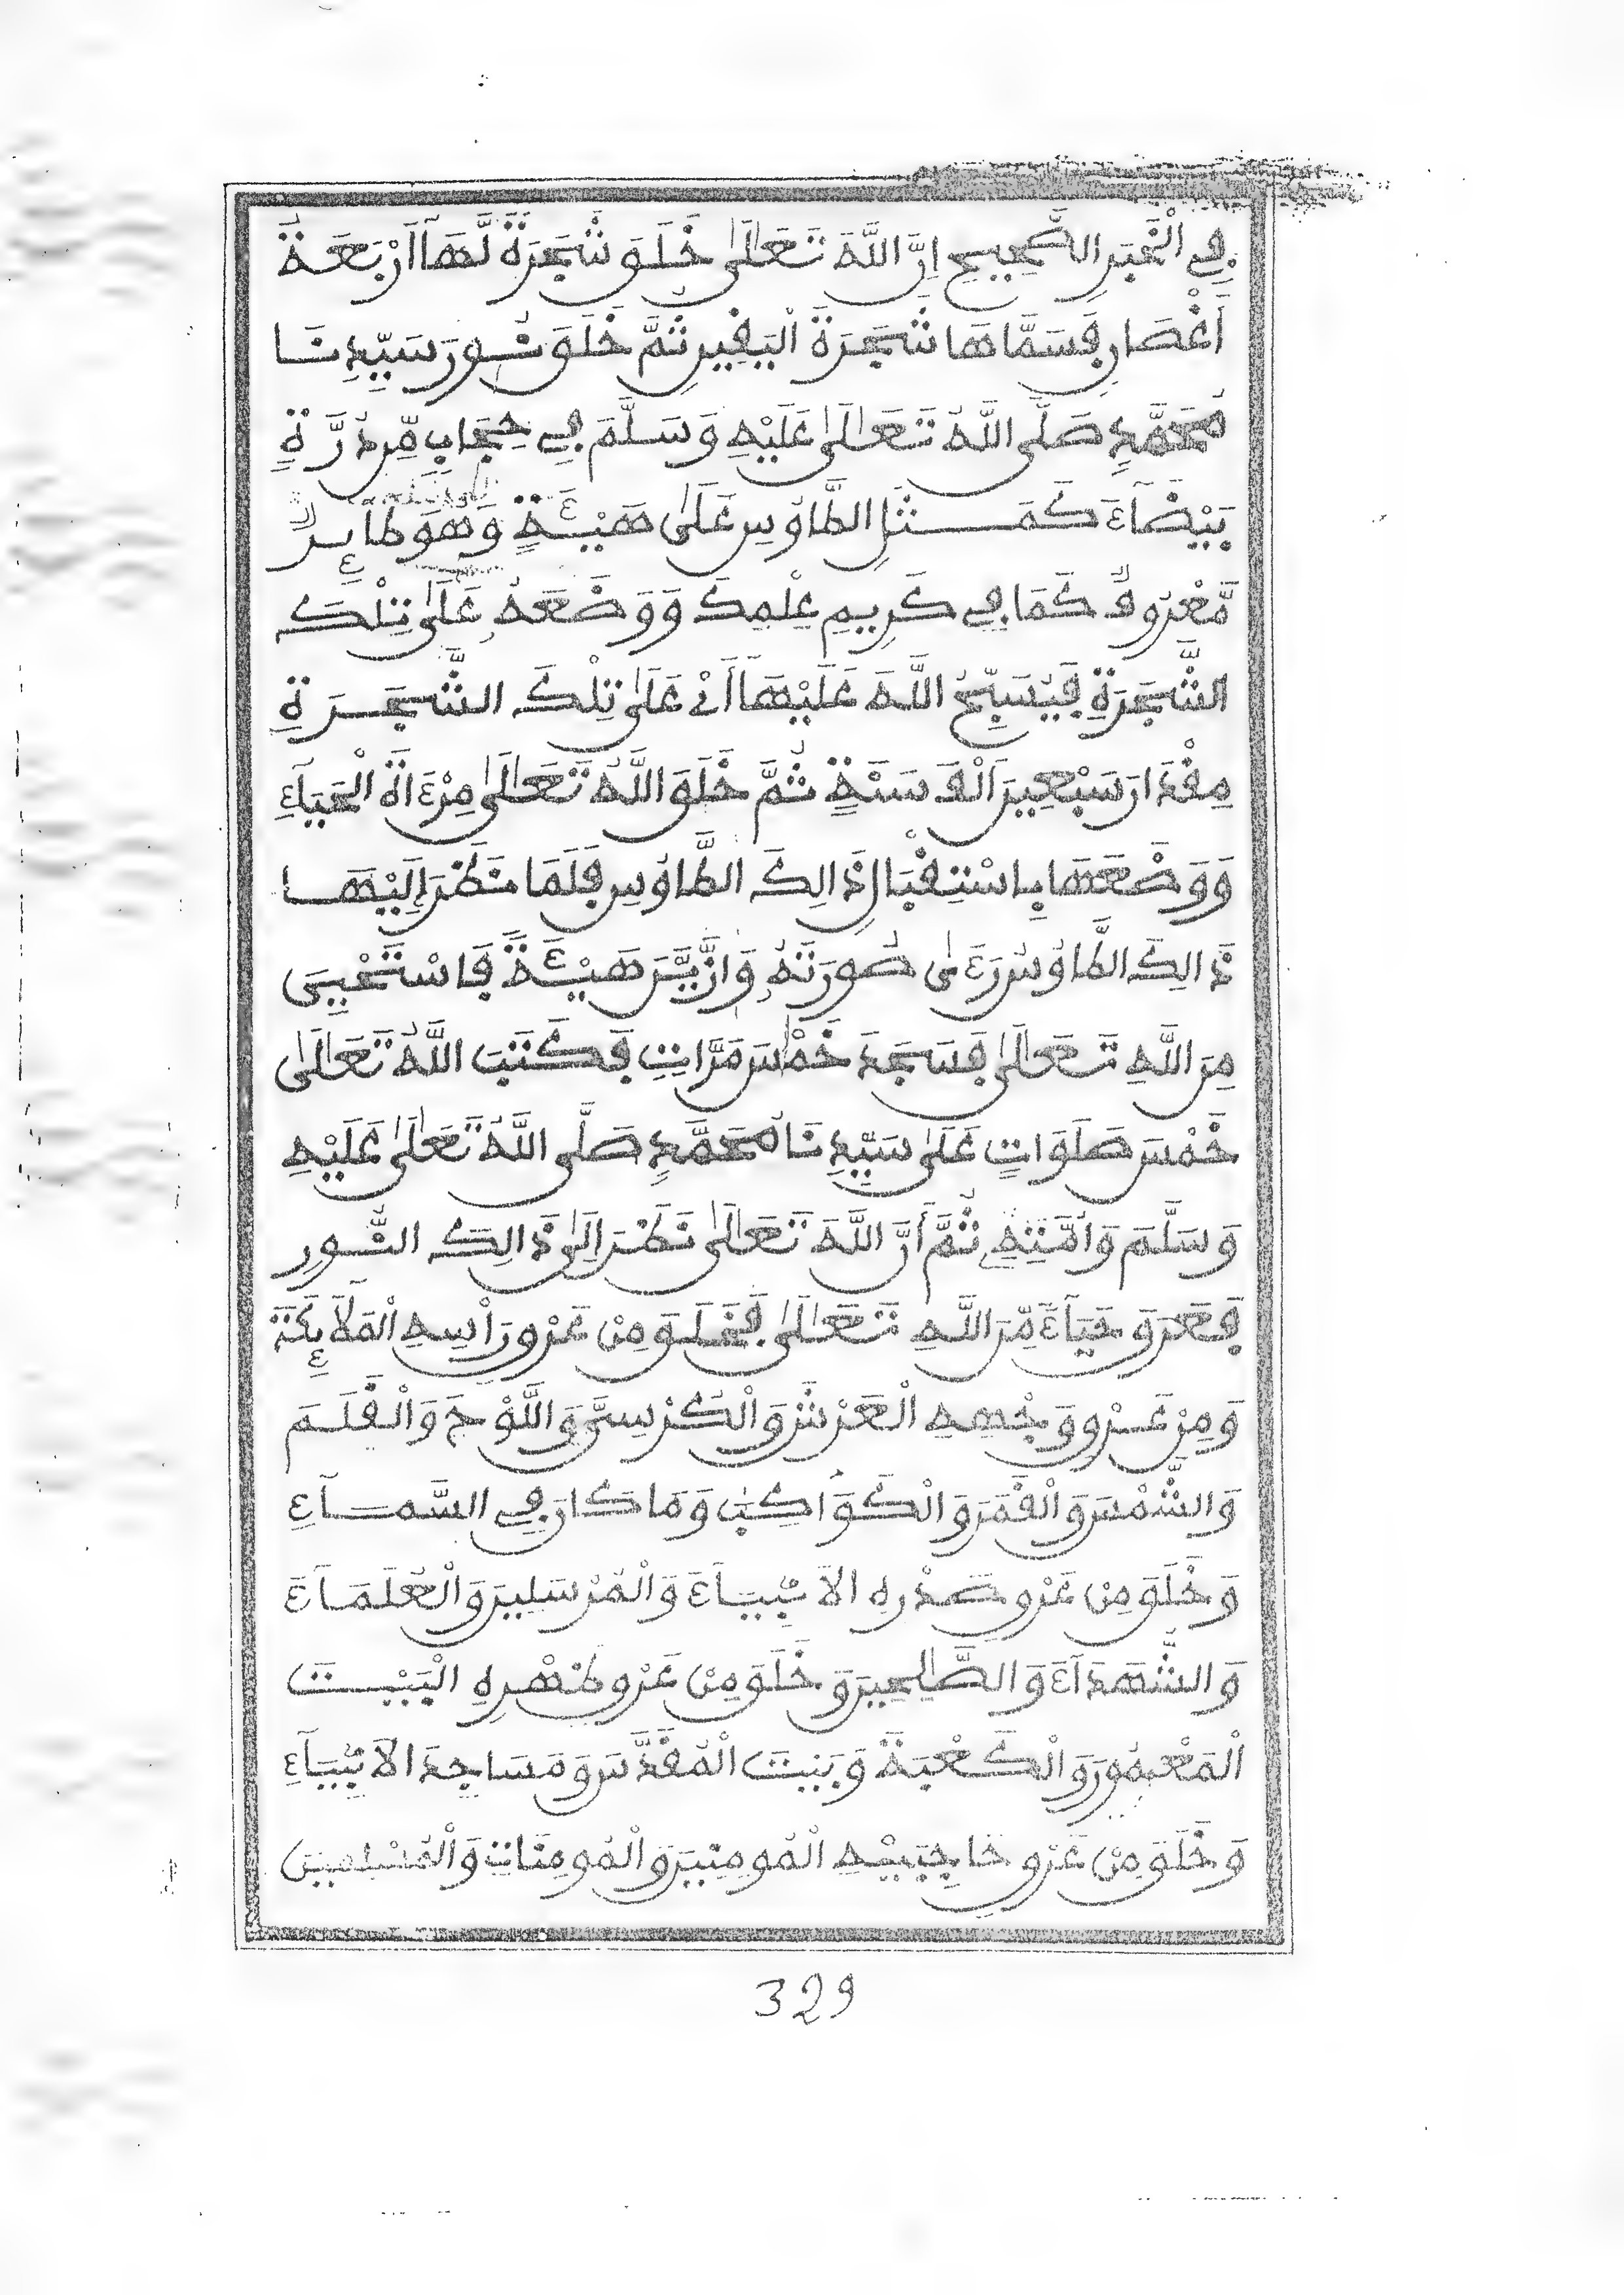 فِي الْخَبَرِ الصَّحِيحِ اِنَّ اللَّهَ تَعَالَىٰ خَلَقَ شَجَرَةً لَّهَا أَرْبَعَةَ
أَغْصَانٍ فَسَمَّاهَا شَجَرَةَ الْيَقِينِ ثُمَّ خَلَقَ نُورَ سَيِّدِنَا
مُحَمَّدٍ صَلَّى اللَّهُ تَعَالَىٰ عَلَيْهِ وَسَلَّمَ فِي حِجَابٍ مِّن دُرَّةٍ
بَيْضَآءَ كَمَثَلِ الطَّاوُسِ عَلَىٰ هَيْئَةٍ وَهُوَ طَآئِرٌ
مَّعْرُوفٌ كَمَا فِي كَرِيمِ عِلْمِكَ وَوَضَعَهُ عَلَىٰ تِلْكَ
الشَّجَرَةِ فَيُسَبِّحُ اللَّهَ عَلَيْهَا أَىْ عَلَىٰ تِلْكَ الشَّجَرَةِ
مِقْدَارَ سَبْعِينَ أَلْفَ سَنَةٍ ثُمَّ خَلَقَ اللَّهُ تَعَالَىٰ مِرْءَاةَ الْحَيَآءِ
وَوَضَعَهَا بِاسْتِقْبَالِ ذَالِكَ الطَّاوُسِ فَلَمَا نَظَرَ إِلَيْهَا
ذَالِكَ الطَّاوُسُ رَءَىٰ صُورَتَهُ وَازَّيَّنَ هَيْئَةً فَاسْتَحْيِىَ
مِنَ اللَّهِ تَعَالَىٰ فَسَجَدَ خَمْسَ مَرَّاتٍ فَكَتَبَ اللَّهُ تَعَالَىٰ
خَمْسَ صَلَوَاتٍ عَلَىٰ سَيِّدِنَا مُحَمَّدٍ صَلَّى اللَّهُ تَعَالَىٰ عَلَيْهِ
وَسَلَّمَ وَأُمَّتِهِ ثُمَّ أَنَّ اللَّهَ تَعَالَىٰ نَظَرَ اِلَىٰ ذَالِكَ النُّورِ
فَعَرَقَ حَيَآءً مِّنَ اللَّهِ تَعَالَىٰ فَخَلَقَ مِنْ عَرَقِ رَأْسِهِ الْمَلَآئِكَةَ
وَمِنْ عَرَقِ وَجْهِهِ الْعَرْشَ وَالْكُرْسِىَّ وَاللَّوْحَ وَالْقَلَمَ
وَالشَّمْسَ وَالْقَمَرَ وَالْكَوَاكِبَ وَمَا كَانَ فِي السَّمَآءِ
وَخَلَقَ مِنْ عَرَقِ صَدْرِهِ الْأَنْبِيَآءَ وَالْمُرْسَلِينَ وَالْعُلَمَآءَ
وَالشُّهَدَآءَ وَالصَّالِحِينَ وَخَلَقَ مِنْ عَرَقِ ظَهْرِهِ الْبَيْتَ
الْمَعْمُورَ وَالْكَعْبَةَ وَبَيْتَ الْمُقَدَّسِ وَمَسَاجِدَ الْأَنْبِيَآءِ
وَخَلَقَ مِنْ عَرَقِ حَاجِبَيْهِ الْمُومِنِينَ وَالْمُومِنَاتِ وَالْمُسْلِمِينَ
329